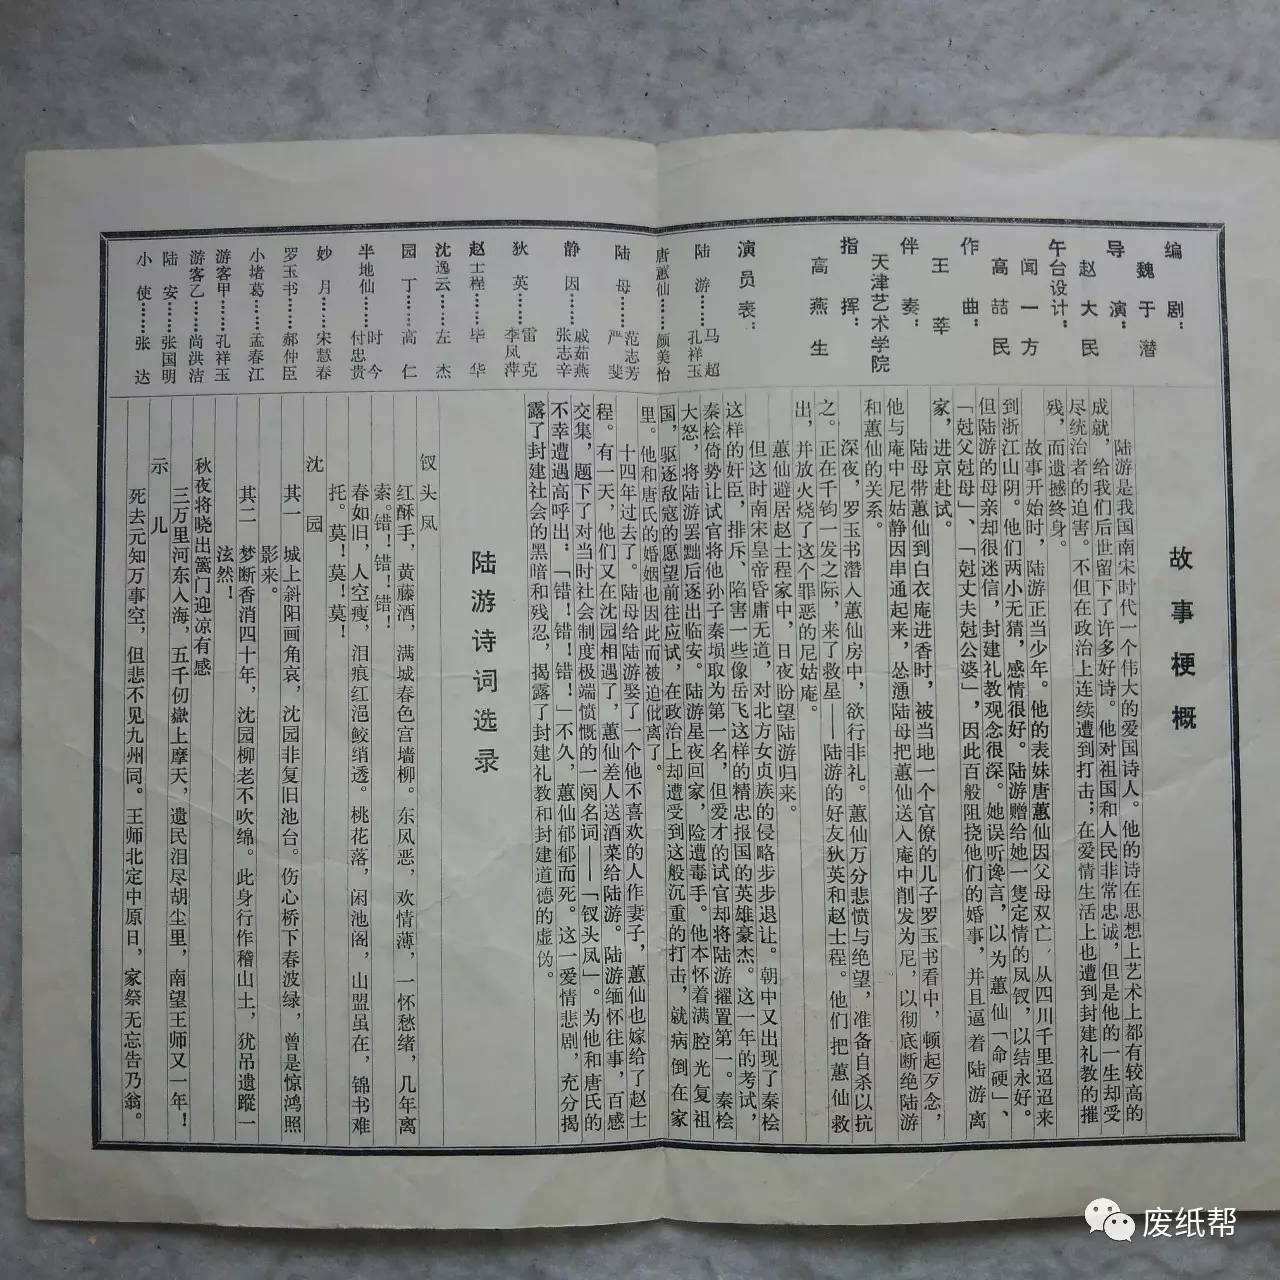 编剧：
魏于潜
导演：
赵大民
午台设计：
闻一方
高喆民
作曲：
王莘
伴奏：
天津艺术学院
指挥：
高燕生
演员表：
陆游……马超
孔祥玉
唐蕙仙……颜美怡
陆母……范志芳
严斐
静因……戚茹燕
张志辛
狄英……雷克
李凤萍
赵士程……毕华
沈逸云……左杰
园丁……高仁
半地仙……时今
付忠贵
妙月……宋慧春
罗玉书……郝仲臣
小堵葛……孟春江
游客甲……孔祥玉
游客乙……尚洪洁
陆安……张国明
小使……张达
故事梗概
陆游是我国南宋时代一个伟大的爱国诗人。他的诗在思想上艺术上都有较高的
成就，给我们后世留下了许多好诗。他对祖国和人民非常忠诚，但是他的一生却受
尽统治者的迫害。不但在政治上连续遭到打击；在爱情生活上也遭到封建礼教的摧
残，而遗撼终身。
故事开始时，陆游正当少年。他的表妹唐蕙仙因父母双亡，从四川千里迢迢来
到浙江山阴。他们两小无猜，感情很好。陆游赠给她一隻定情的凤钗，以结永好。
但陆游的母亲却很迷信，封建礼教观念很深。她误听谗言，以为蕙仙「命硬」、
「尅父尅母」、「尅丈夫尅公婆」，因此百般阻挠他们的婚事，并且逼着陆游离
家，进京赴试。
陆母带蕙仙到白衣庵进香时，被当地一个官僚的儿子罗玉书看中，顿起歹念，
他与庵中尼姑静因串通起来，怂恿陆母把蕙仙送入庵中削发为尼，以彻底断绝陆游
和蕙仙的关系。
深夜，罗玉书潜入蕙仙房中，欲行非礼。蕙仙万分悲愤与绝望，准备自杀以抗
之。正在千钧一发之际，来了救星——陆游的好友狄英和赵士程。他们把蕙仙救
出，并放火烧了这个罪恶的尼姑庵。
蕙仙避居赵士程家中，日夜盼望陆游归来。
但这时南宋皇帝昏庸无道，对北方女贞族的侵略步步退让。朝中又出现了秦桧
这样的奸臣，排斥、陷害一些像岳飞这样的精忠报国的英雄豪杰。这一年的考试，
秦桧倚势让试官将他孙子秦埙取为第一名，但爱才的试官却将陆游擢置第一。秦桧
大怒，将陆游罢黜后逐出临安。陆游星夜回家，险遭毒手。他本怀着满腔光复祖
国，驱逐敌寇的愿望前往应试，在政治上却遭受到这般沉重的打击，就病倒在家
里。他和唐氏的婚姻也因此而被迫仳离了。
十四年过去了。陆母给陆游娶了一个他不喜欢的人作妻子，蕙仙也嫁给了赵士
程。有一天，他们又在沈园相遇了，蕙仙差人送酒菜给陆游。陆游缅怀往事，百感
交集，题下了对当时社会制度极端愤慨的一阕名词——「钗头凤」。为他和唐氏的
不幸遭遇高呼出，「错！错！错！」不久，蕙仙郁郁而死。这一爱情悲剧，充分揭
露了封建社会的黑暗和残忍，揭露了封建礼教和封建道德的虚伪。
陆游诗词选录
钗头凤
红酥手，黄藤酒，满城春色宫墙柳。东风恶，欢情薄，一怀愁绪，几年离
索。错！错！错！
春如旧，人空瘦，泪痕红浥鲛绡透。桃花落，闲池阁，山盟虽在，锦书难
托。莫！莫！莫！
沈园
其一 城上斜阳画角哀，沈园非复旧池台。伤心桥下春波绿，曾是惊鸿照
影来。
其二 梦断香消四十年，沈园柳老不吹绵。此身行作稽山土，犹吊遗蹤一
泫然！
秋夜将晓出篱门迎凉有感
三万里河东入海，五千仞嶽上摩天，遗民泪尽胡尘里，南望王师又一年！
示儿
死去元知万事空，但悲不见九州同。王师北定中原日，家祭无忘告乃翁。
废纸帮